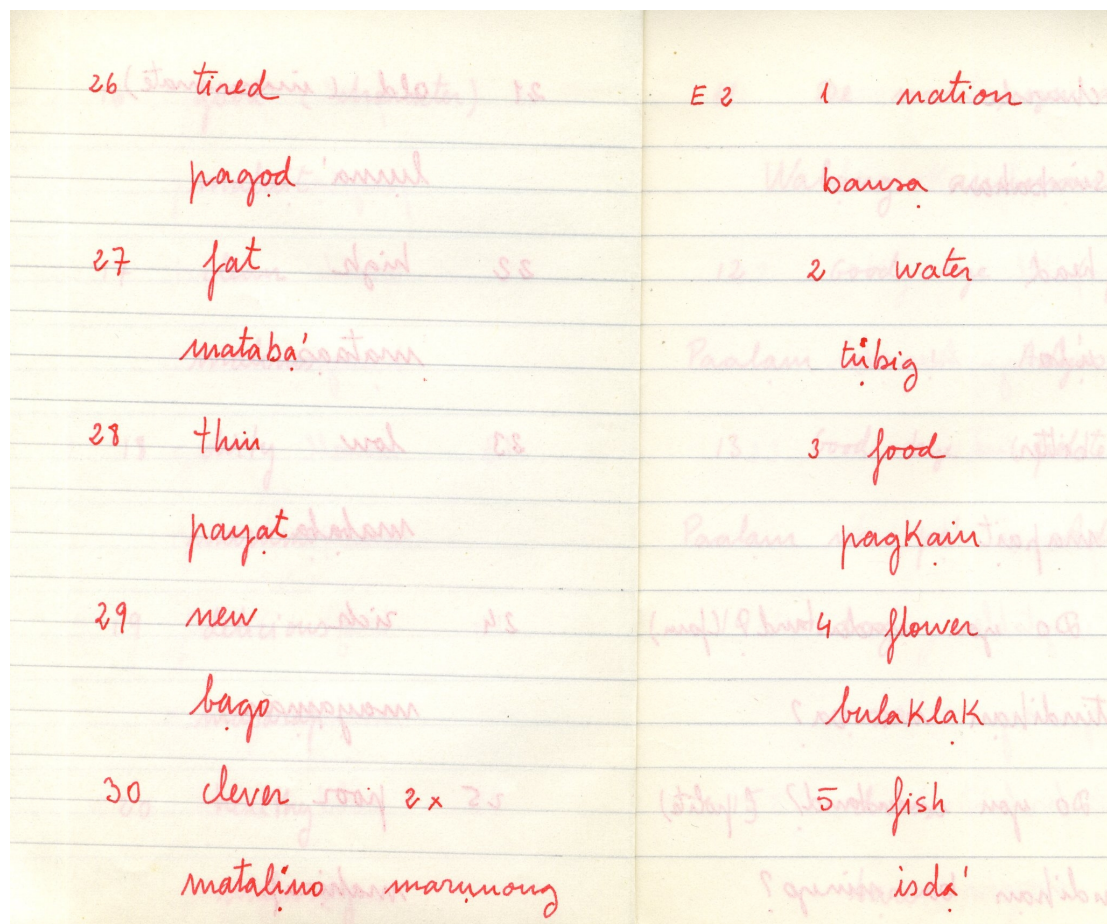 26 tired
pagọd
27 fat
matabạ'
28 thin
payạt
29 new
bạgo
30 clever 2x
matalịno marụnong
E2 1 nation
bansạ
2 water
tụbig
3 food
pagkạin
4 flower
bulaklạk
5 fish
isdạ'